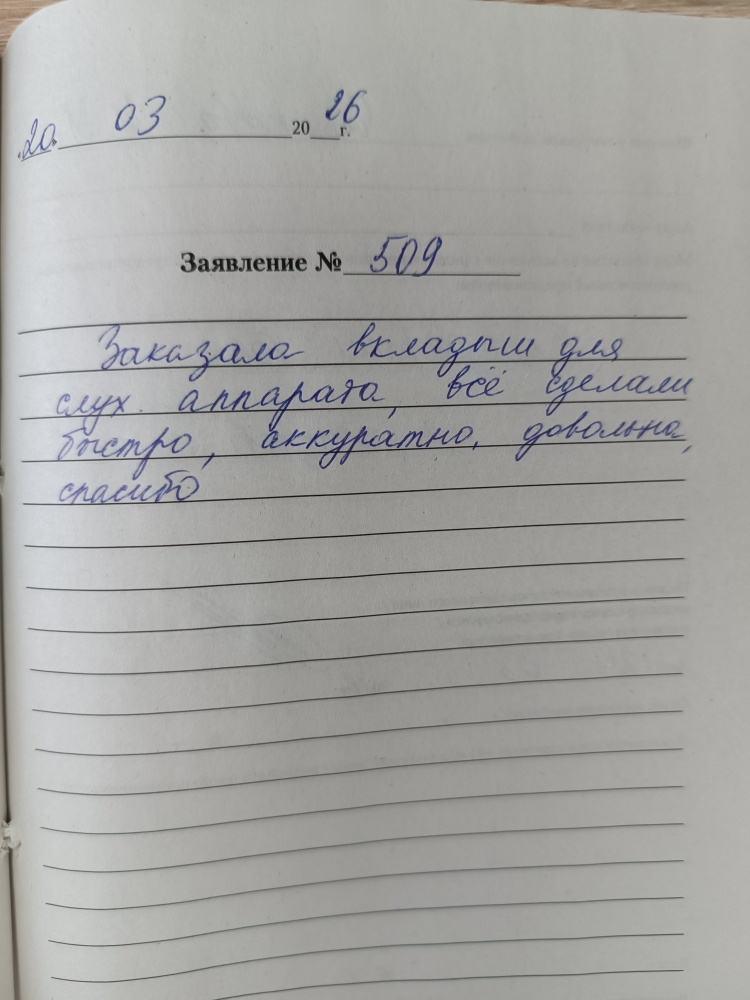 «20» 03 2026 г.
Заявление № 509
Заказала вкладыш для
слух. аппарата, всё сделали
быстро, аккуратно, довольна,
спасибо